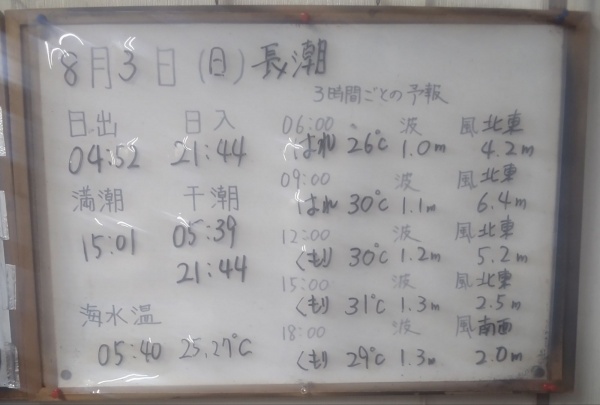 8月3日(日)長潮
3時間ごとの予報
日出 日入
04:52 21:44
満潮 干潮
15:01 05:39
21:44
海水温
05:40 25.27℃
06:00 波 風 北東
はれ 26℃ 1.0m 4.2m
09:00 波 風 北東
はれ 30℃ 1.1m 6.4m
12:00 波 風 北東
くもり 30℃ 1.2m 5.2m
15:00 波 風 北東
くもり 31℃ 1.3m 2.5m
18:00 波 風 南西
くもり 29℃ 1.3m 2.0m